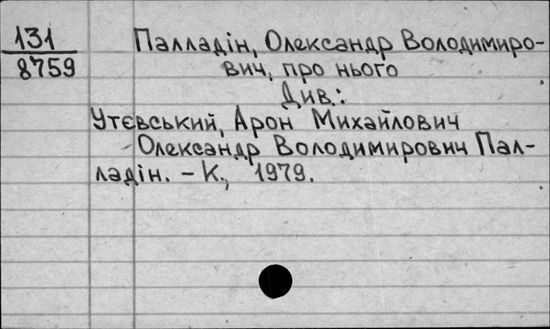 131
8759
Палладін, Олександр Володимиро-
вич, про нього
Див.:
Утєвський, Арон Михайлович
Олександр Володимирович Пал-
ладін. – К., 1979.